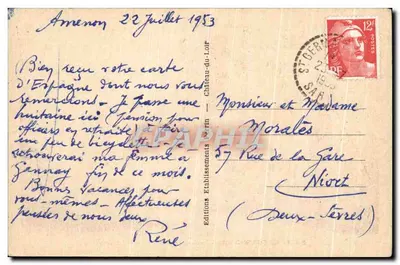 Amenon 22 Juillet 1953
Bien reçu votre carte
d'Espagne dont nous vous
remercions - Je passe une
huitaine ici (pension pour
officiers en retraite)
un peu de
retrouverai ma femme à
Jannay fin de ce mois.
Bonnes Vacances pour
vous-mêmes - Affectueuses
pensées de nous deux
René
Editions Etablissements - Château-du-Loir
12F
ST GERMAIN
SARTHE
Monsieur et Madame
Moralès
57 Rue de la Gare
Niort
(Deux-Sèvres)